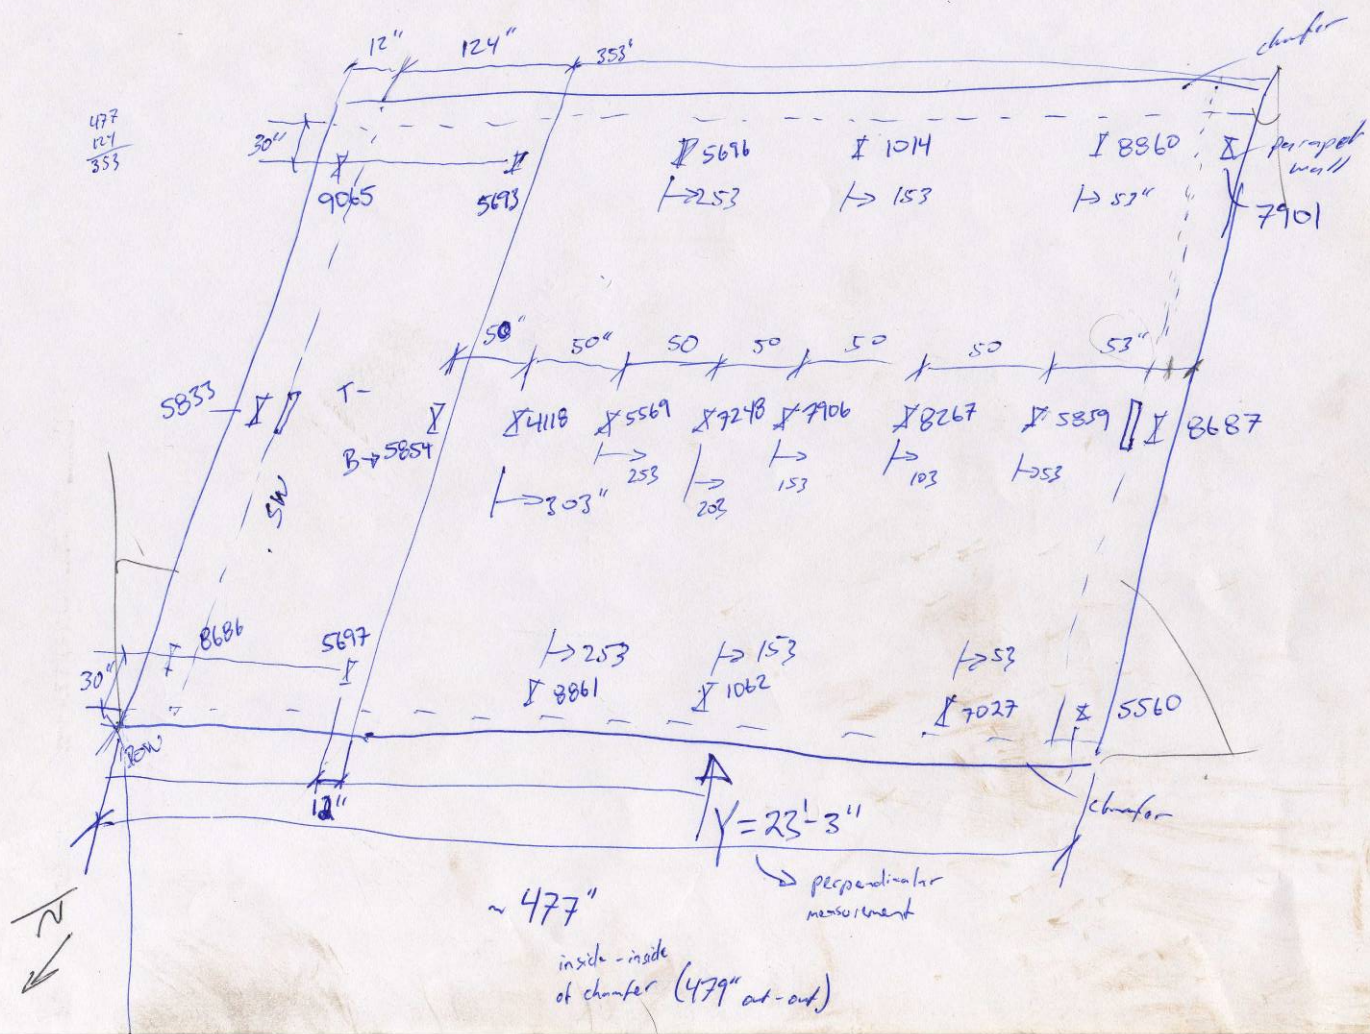 12" 124" 353"
chamfer
477
124
353
30"
5696 1014 8860 parapet
wall
9065 5693 253 153 53" 7901
50" 50" 50 50 50 50 53"
5833 T-
4118 5569 7248 7906 8267 5859 8687
B→5854
253 203 153 103 53
303"
SW
8686 5697
253 153 53
30"
8861 1062 7027 5560
12"
chamfer
Y=23'-3"
perpendicular
measurement
N
~ 477"
inside-inside
of chamfer (479" out-out)